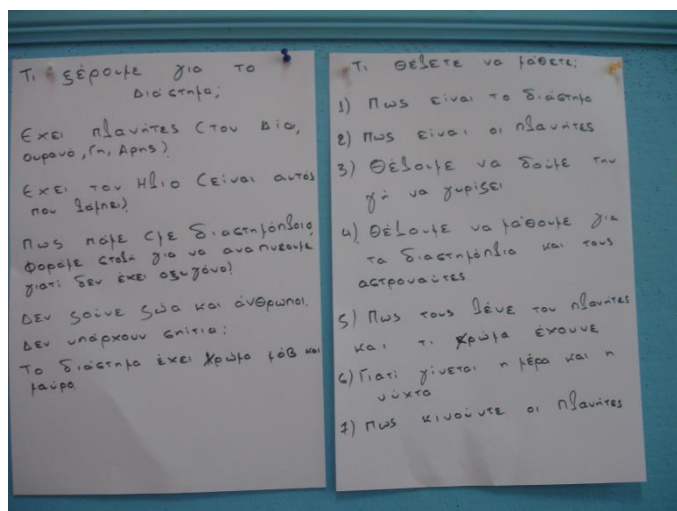 Τι ξέρουμε για το
Διάστημα;
Εχει πλανήτες (τον Δία,
ουρανό, Γη, Αρης)
Εχει τον Ηλιο (είναι αυτός
που λάμπει)
Πως πάμε (με διαστημόπλοιο,
φοράμε στολή για να αναπνέουμε
γιατί δεν έχει οξυγόνο)
Δεν ζούνε ζώα και άνθρωποι.
Δεν υπάρχουν σπίτια;
Το διάστημα έχει χρώμα μόβ και
μαύρο
Τι θέλετε να μάθετε;
1) Πως είναι το διάστημα
2) Πως είναι οι πλανήτες
3) Θέλουμε να δούμε την
γή να γυρίζει
4) Θέλουμε να μάθουμε για
τα διαστημόπλοια και τους
αστροναύτες
5) Πως τους λένε του πλανήτες
και τι χρώμα έχουνε
6) Γιατί γίνεται η μέρα και η
νύχτα
7) Πως κινούντε οι πλανήτες